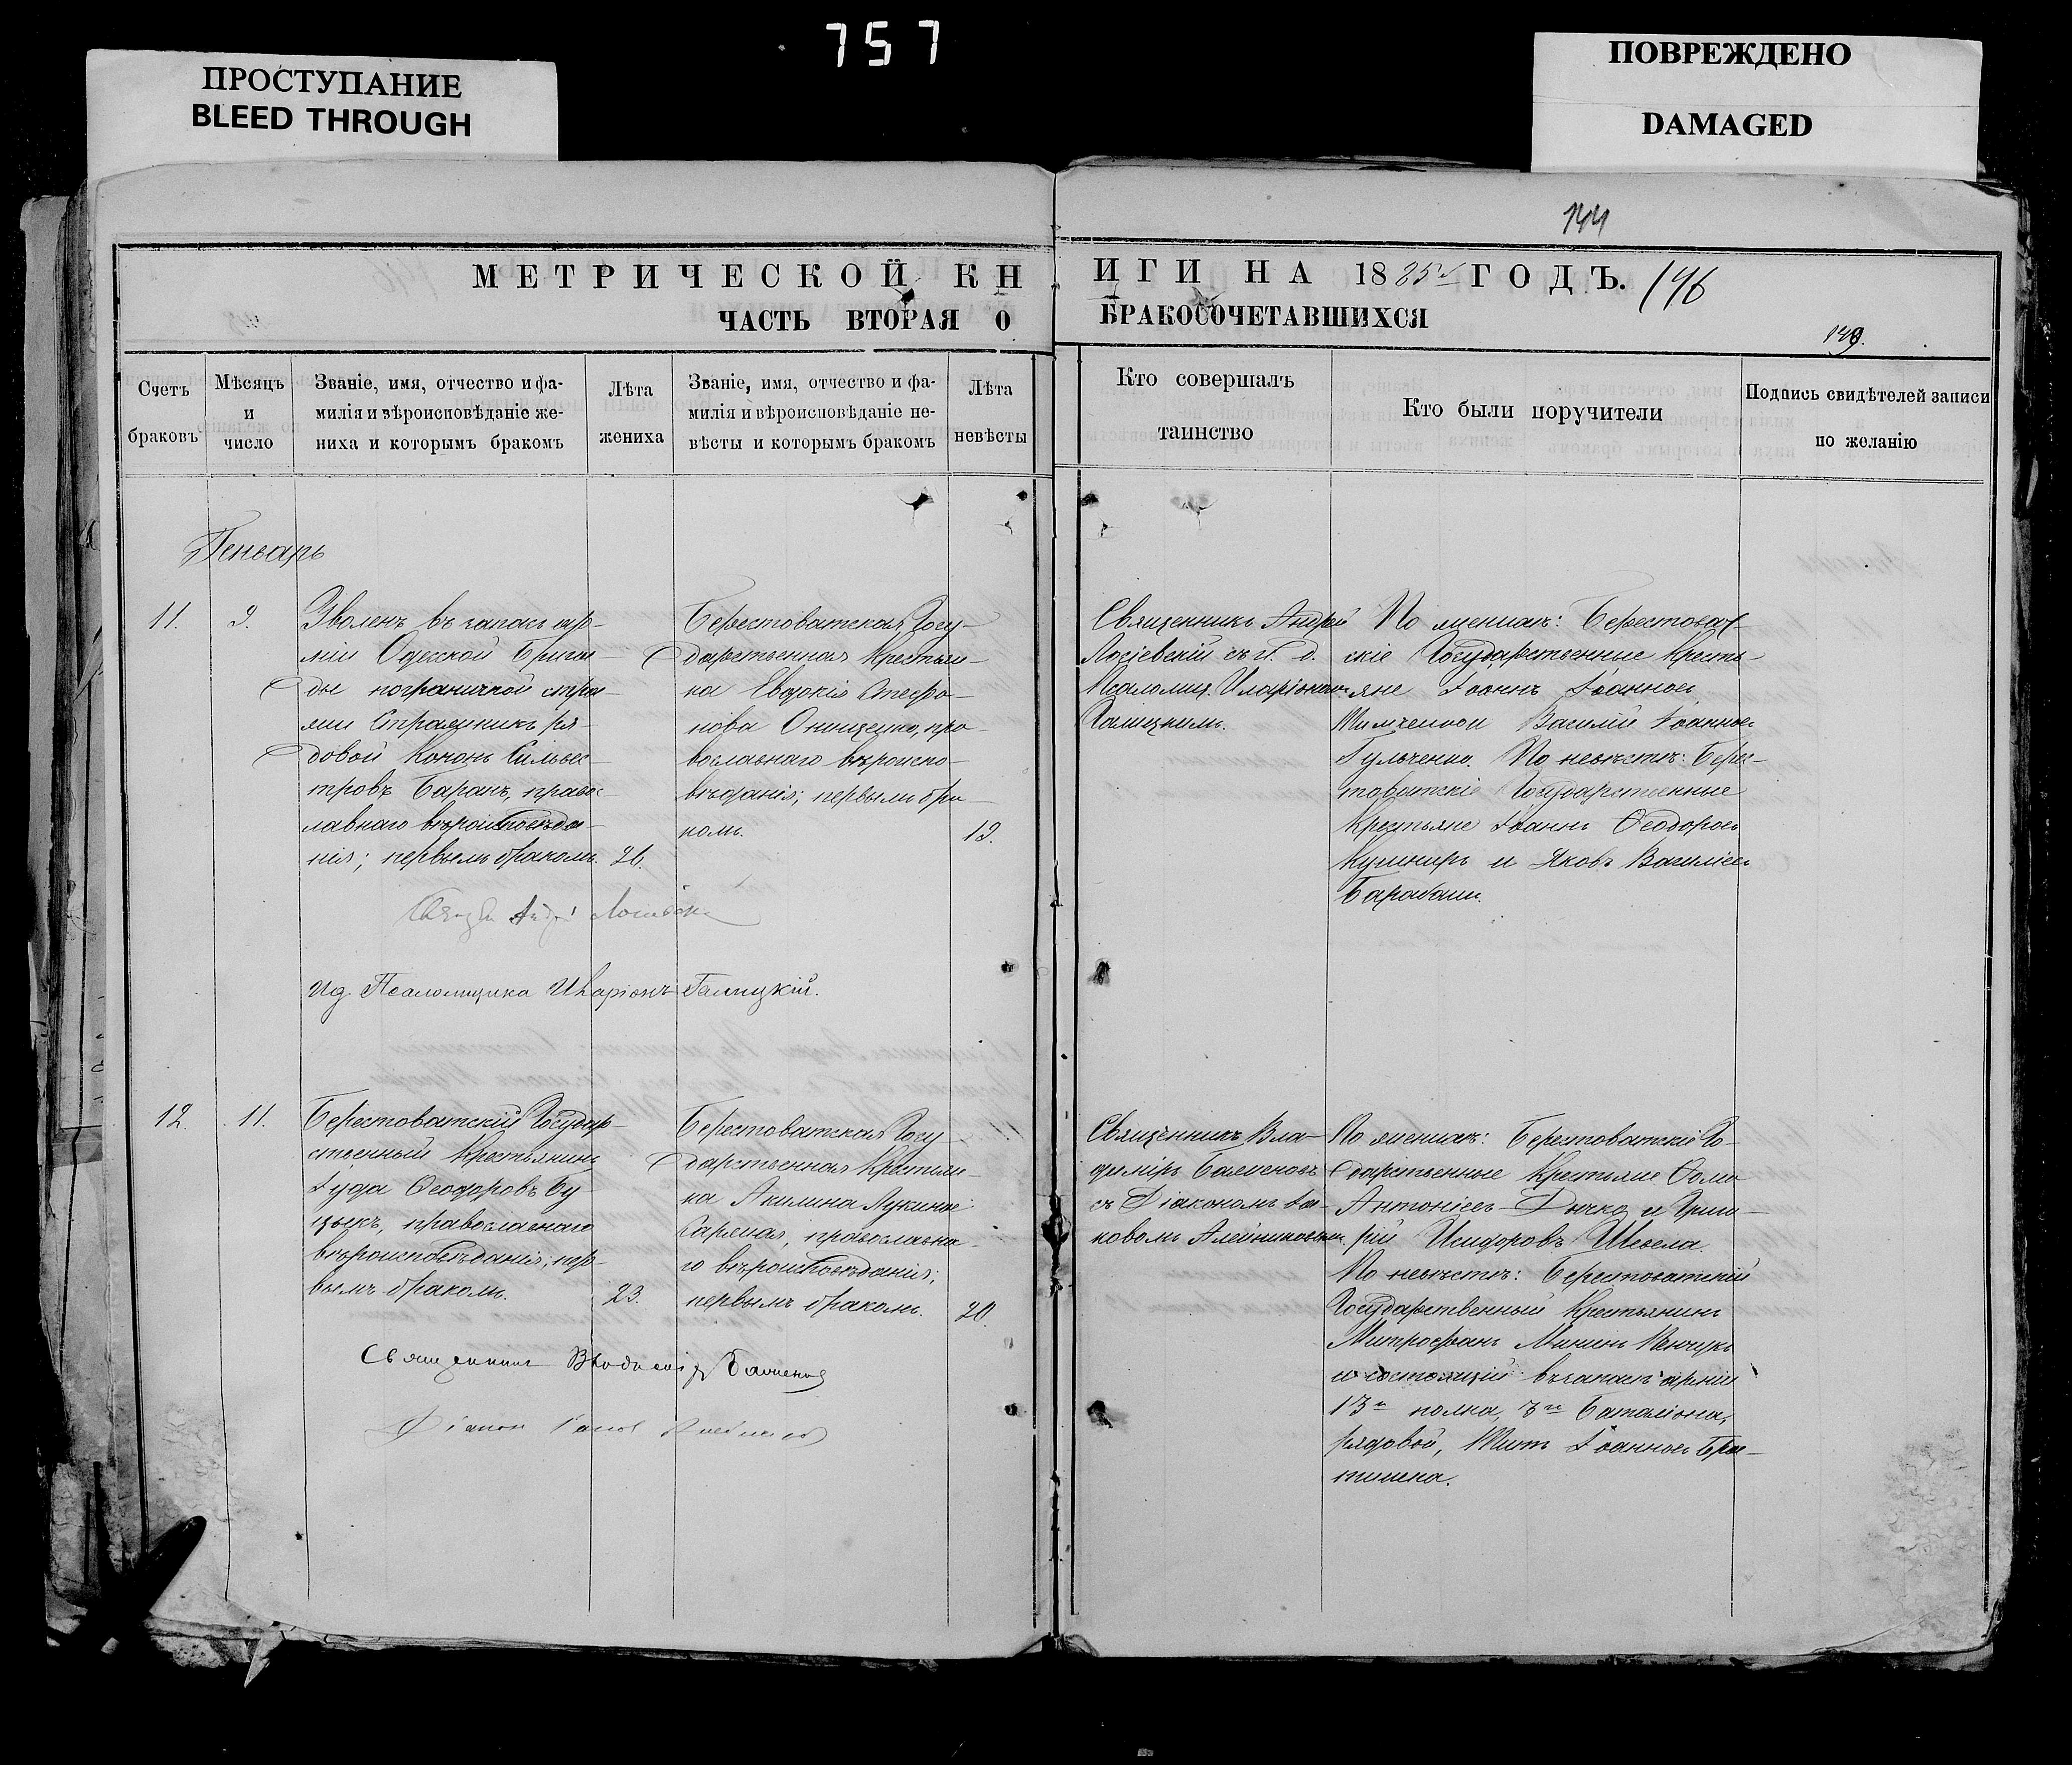 757
ПРОСТУПАНИЕ
BLEED THROUGH
ПОВРЕЖДЕНО
DAMAGED
144
МЕТРИЧЕСКОЙ КНИГИ НА 1885 ГОДЪ. 146
ЧАСТЬ ВТОРАЯ О БРАКОСОЧЕТАВШИХСЯ
149.
Счетъ
браковъ
Мѣсяцъ
и
число
Званіе, имя, отчество и фа-
милія и вѣроисповѣданіе же-
ниха и которымъ бракомъ
Лѣта
жениха
Званіе, имя, отчество и фа-
милія и вѣроисповѣданіе не-
вѣсты и которымъ бракомъ
Лѣта
невѣсты
Кто совершалъ
таинство
Кто были поручители
Подпись свидѣтелей записи
по желанію
Генварь
11.
9.
въ запасъ ар-
міи Одесской Брига-
ды пограничной стра-
жи Стражникъ ря-
довой Кононъ Сильвес-
тровъ Баранъ, правос-
лавнаго вѣроисповѣда-
нія; первымъ бракомъ.
26.
Берестоватская Госу-
дарственная Крестьян-
ка Евдокія Стефа-
нова Онищенко, пра-
вославнаго вѣроиспо-
вѣданія; первымъ бра-
комъ.
19.
Священникъ Андрей
Лосіевскій съ и. д.
Псаломщ. Иларіономъ
Галицкимъ.
По женихѣ: Берестоват-
скіе Государственные Кресть-
яне Іоаннъ Іоанновъ
Василій Іоанновъ
Гульченко. По невѣстѣ: Берес-
товатскіе Государственные
Крестьяне Іоаннъ Ѳеодоровъ
Кушниръ и Яковъ Василіевъ
Барабашъ.
Андрей Лосіевскій
Ид. Псаломщика Иларіонъ Галицкій.
12.
11.
Берестоватскій Государ-
ственный Крестьянинъ
Іуда Ѳеодоровъ Бу-
цыкъ, православнаго
вѣроисповѣданія; пер-
вымъ бракомъ.
23.
Берестоватская Госу-
дарственная Крестьян-
ка Акилина Лукина
православна-
го вѣроисповѣданія;
первымъ бракомъ.
20.
Священникъ Вла-
диміръ Баженовъ
съ Діакономъ Іа-
ковомъ Алейниковымъ.
По женихѣ: Берестоватскіе Го-
дарственные Крестьяне Ѳома
Антоніевъ Дычко и Григо-
рій Исидоровъ Шевела.
По невѣстѣ: Берестоватскій
Государственный Крестьянинъ
Митрофанъ Мининъ
и состоящій въ запасѣ арміи
13го полка, 3го Баталіона,
рядовой, Титъ Іоанновъ
Священникъ Владиміръ Баженовъ
Діаконъ Іаковъ Алейниковъ